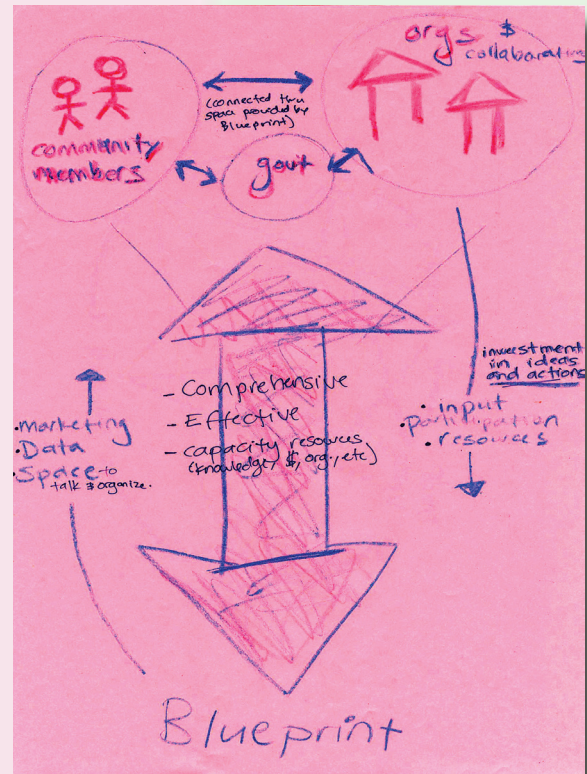 orgs &
collaboratives
(connected thru
space provided by
Blueprint)
community
members
govt
investment
in ideas
and actions
- Comprehensive
- Effective
- capacity resources
(knowledge, $, org., etc)
• marketing
• Data
• Space - to
talk & organize.
• input
• participation
• resources
Blueprint